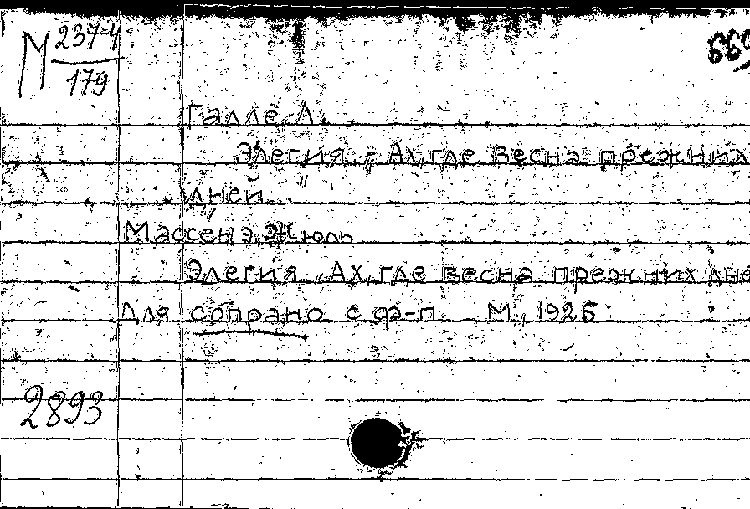 М 237-4
179
669
Галле Л.
Элегия. "Ах, где весна прежних
дней
Массенэ, Жюль
Элегия. Ах, где весна прежних дне
Для сопрано с ф-п. М., 1925
2893